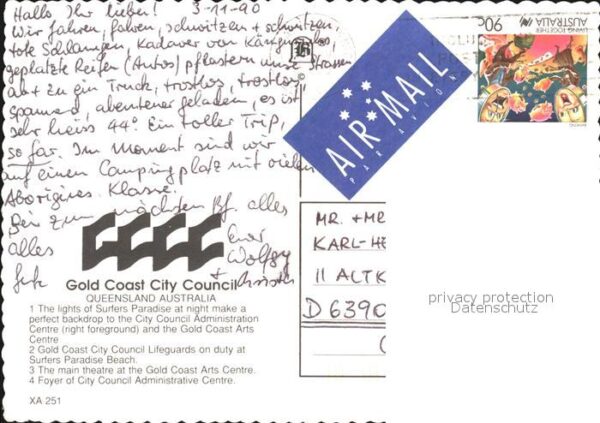 Hallo, Ihr lieben! 3-11-90
Wir fahren, fahren, schwitzen + schwitzen,
tote Schlangen, Kadaver von Kängurus,
geplatzte Reifen (Autos) pflastern unsre Strassen
ab + zu ein Truck, trostlos, trostlos,
spannend, abenteuer geladen, es ist
sehr heiss 44°. Ein toller Trip,
so far. Im Moment sind wir
auf einen Campingplatz mit vielen
Aborigines. Klasse.
Bis zum nächsten Bf. alles
alles Euer
Wolfgg
+
Gold Coast City Council
QUEENSLAND AUSTRALIA
1 The lights of Surfers Paradise at night make a
perfect backdrop to the City Council Administration
Centre (right foreground) and the Gold Coast Arts
Centre
2 Gold Coast City Council Lifeguards on duty at
Surfers Paradise Beach.
3 The main theatre at the Gold Coast Arts Centre.
4 Foyer of City Council Administrative Centre.
XA 251
AIR MAIL
PAR AVION
90c
LIVING TOGETHER
AUSTRALIA
MR. + MR
KARL-HE
11 ALTK
D 6390
privacy protection
Datenschutz